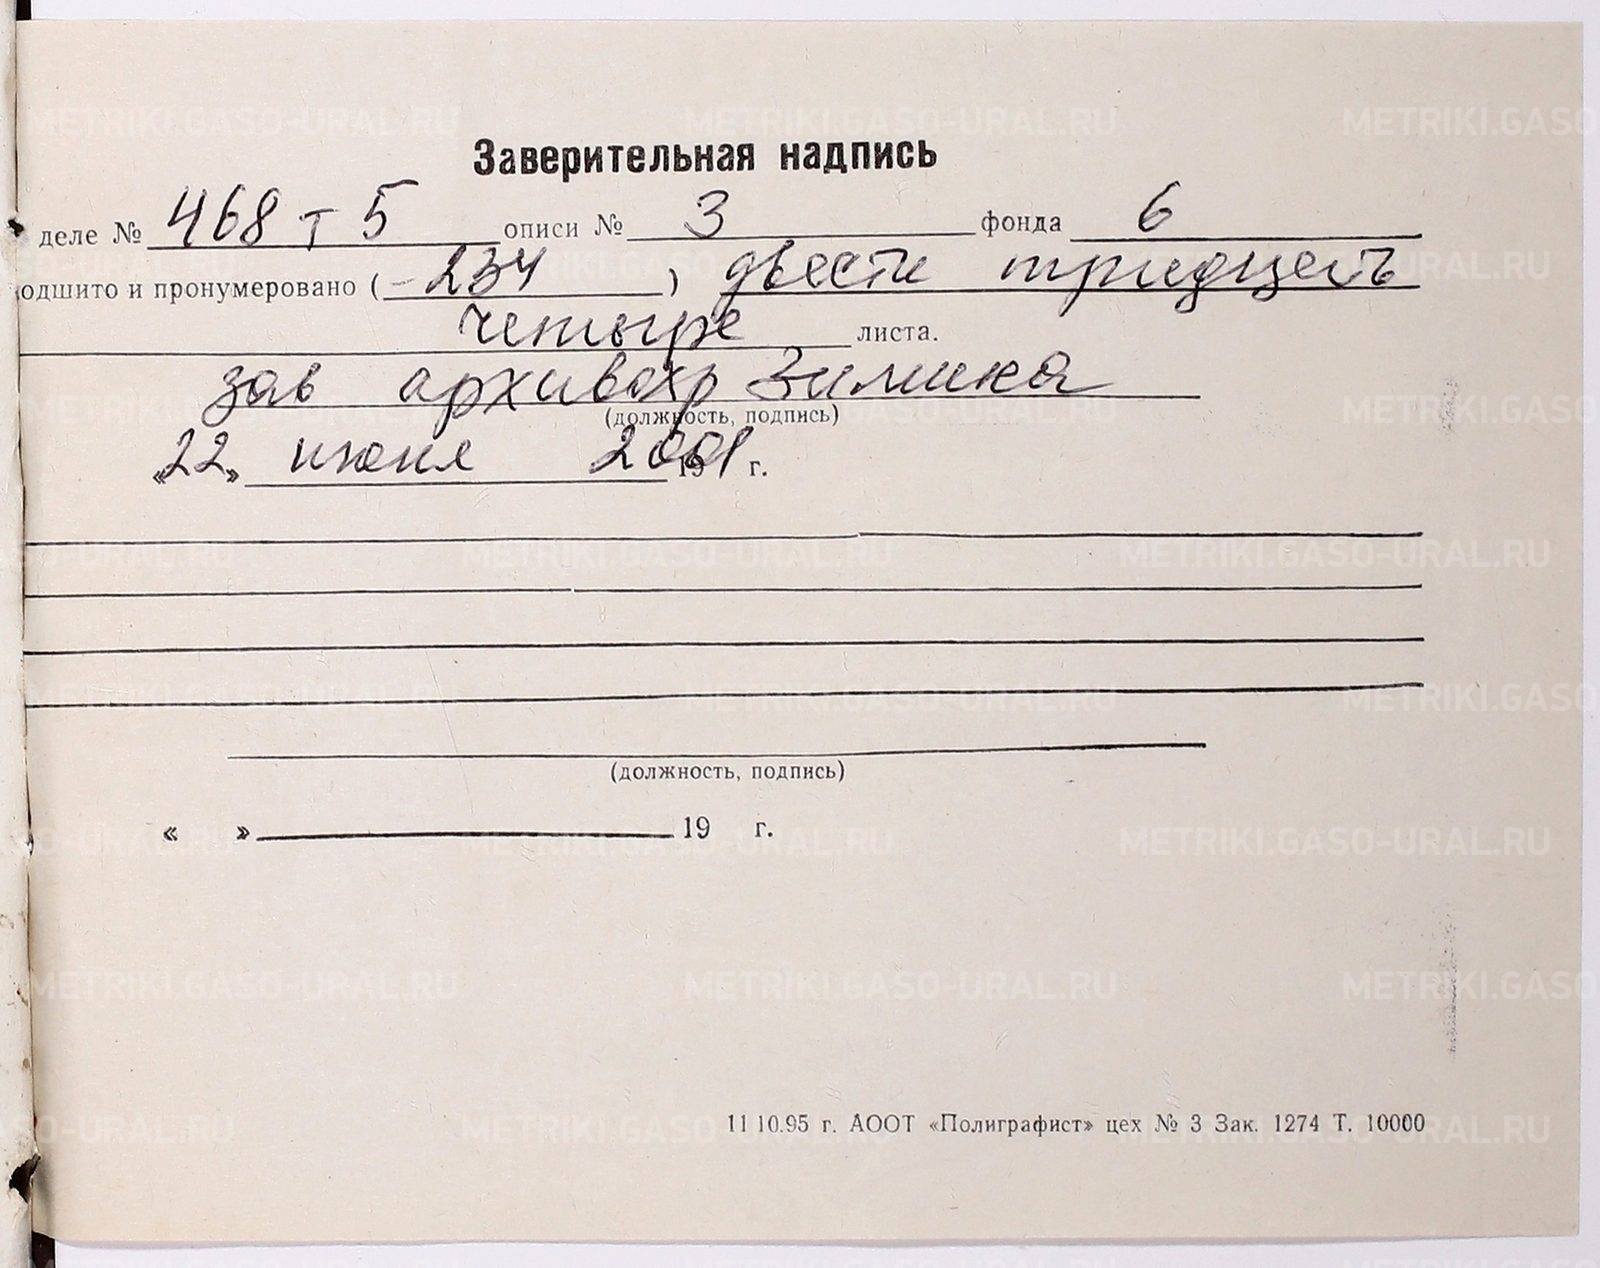 Заверительная надпись
деле № 468 т 5 описи № 3 фонда 6
одшито и пронумеровано (-234), двести тридцать
четыре листа.
зав архивохр Зимина
(должность, подпись)
«22» июня 2001 19 г.
(должность, подпись)
« » 19 г.
11 10.95 г. АООТ «Полиграфист» цех № 3 Зак. 1274 Т. 10000
METRIKI.GASO-URAL.RU